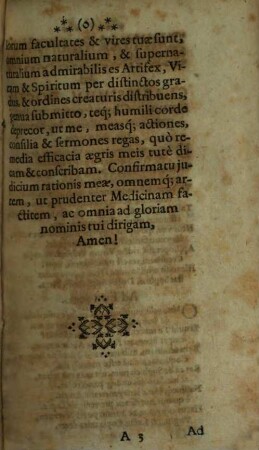 (o)
storum facultates & vires tuæ sunt,
omnium naturalium, & superna-
turalium admirabilis es Artifex, Vi-
tam & Spiritum per distinctos gra-
dus & ordines creaturis distribuens,
genua submitto, teq; humili corde
deprecor, ut me, measq; actiones,
consilia & sermones regas, quò re-
media efficacia ægris meis tutè di-
cam & conscribam. Confirma tu ju-
dicium rationis meæ, omnemq; ar-
tem, ut prudenter Medicinam fa-
ctitem, ac omnia ad gloriam
nominis tui dirigam,
Amen!
A 3
Ad